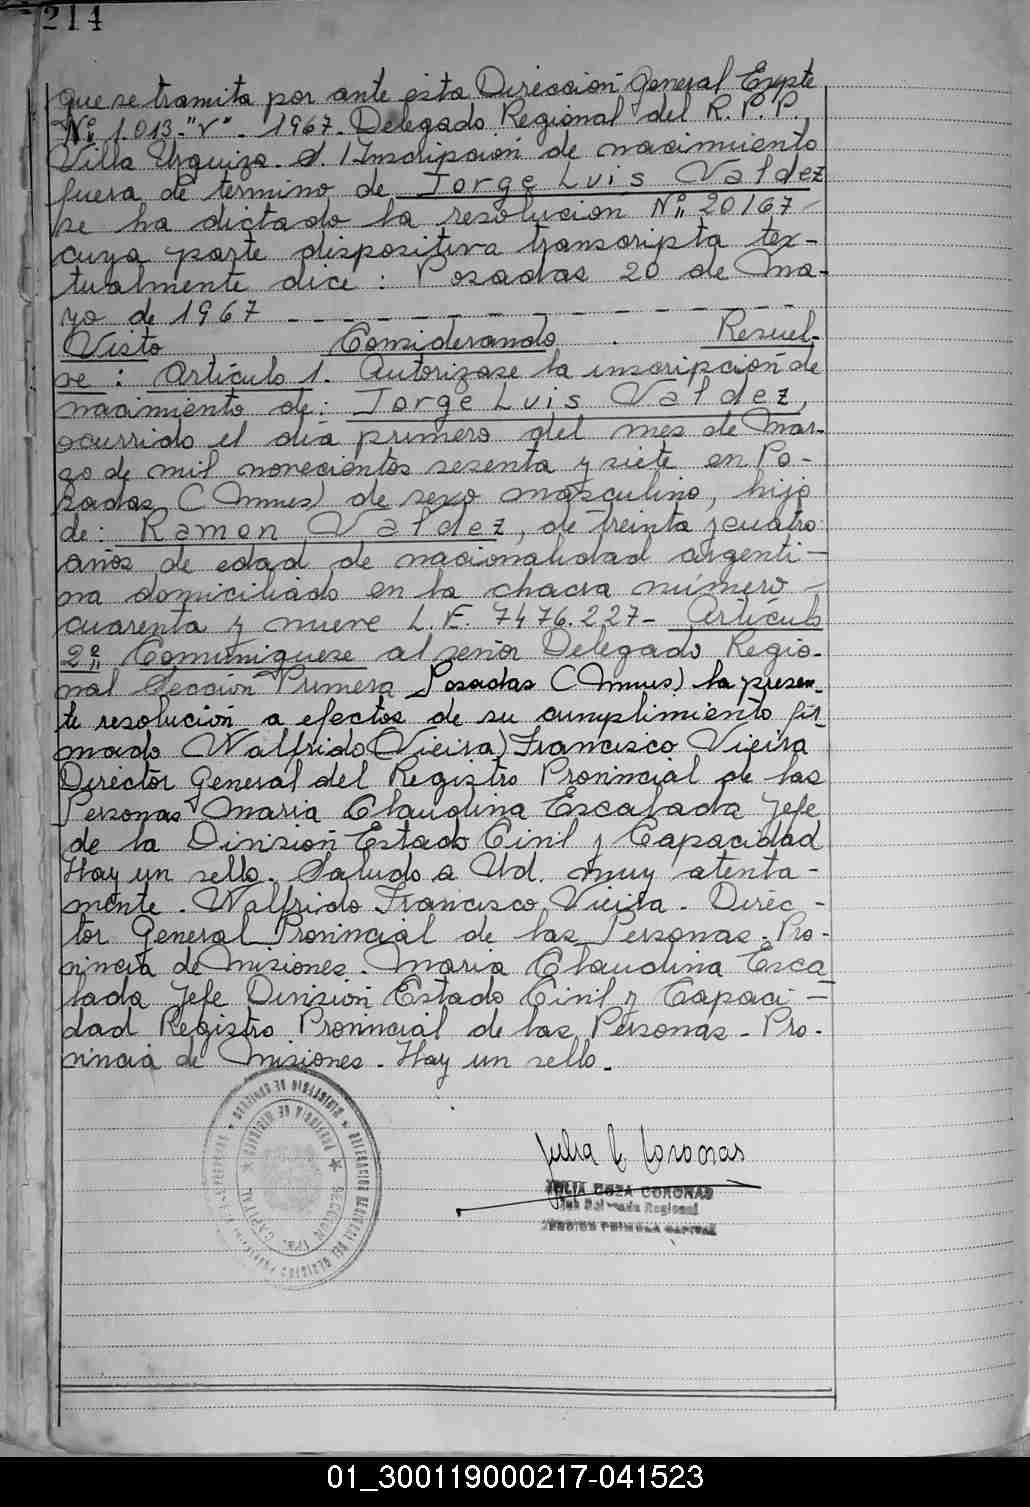 214
que se tramita por ante esta Dirección General Expte
Nº 1.013-"V"- 1967- Delegado Regional del R. P. P.
Villa Urquiza. S. / Inscripción de nacimiento
fuera de termino de Jorge Luis Valdez
se ha dictado la resolucion Nº 20167-
cuya parte dispositiva transcripta tex-
tualmente dice: Posadas 20 de Ma-
yo de 1967 - - - - - - - - - - - - - -
Visto Considerando . Resuel-
ve: Artículo 1. Autorizase la inscripción de
nacimiento de: Jorge Luis Valdez,
ocurrido el dia primero del mes de Mar-
zo de mil novecientos sesenta y siete en Po-
sadas (Mnes) de sexo masculino, hijo
de: Ramon Valdez, de treinta y cuatro
años de edad de nacionalidad argenti-
na domiciliado en la chacra número -
cuarenta y nueve L.E. 7476.227- Artículo
2º Comuniquese al señor Delegado Regio-
nal Sección Primera Posadas (Mnes) la presen-
te resolución a efectos de su cumplimiento fir-
mado Walfrido (Vieira) Francisco Vieira
Director General del Registro Provincial de las
Personas Maria Claudina Escalada Jefe
de la División Estado Civil y Capacidad
Hay un sello. Saludo a Ud. muy atenta-
mente. Walfrido Francisco Vieira. Direc-
tor General Provincial de las Personas. Pro-
vincia de Misiones. Maria Claudina Esca
lada Jefe Division Estado Civil y Capaci-
dad Registro Provincial de las Personas - Pro-
vincia de Misiones. Hay un sello.
Julia C. Coronas
JULIA COZA CORONAS
Sub Delegada Regional
SECCION PRIMERA CAPITAL
PROVINCIA DE MISIONES
MINISTERIO DE GOBIERNO
DELEGACION REGIONAL DEL REGISTRO
SECCION 1ra. CAPITAL
01_300119000217-041523